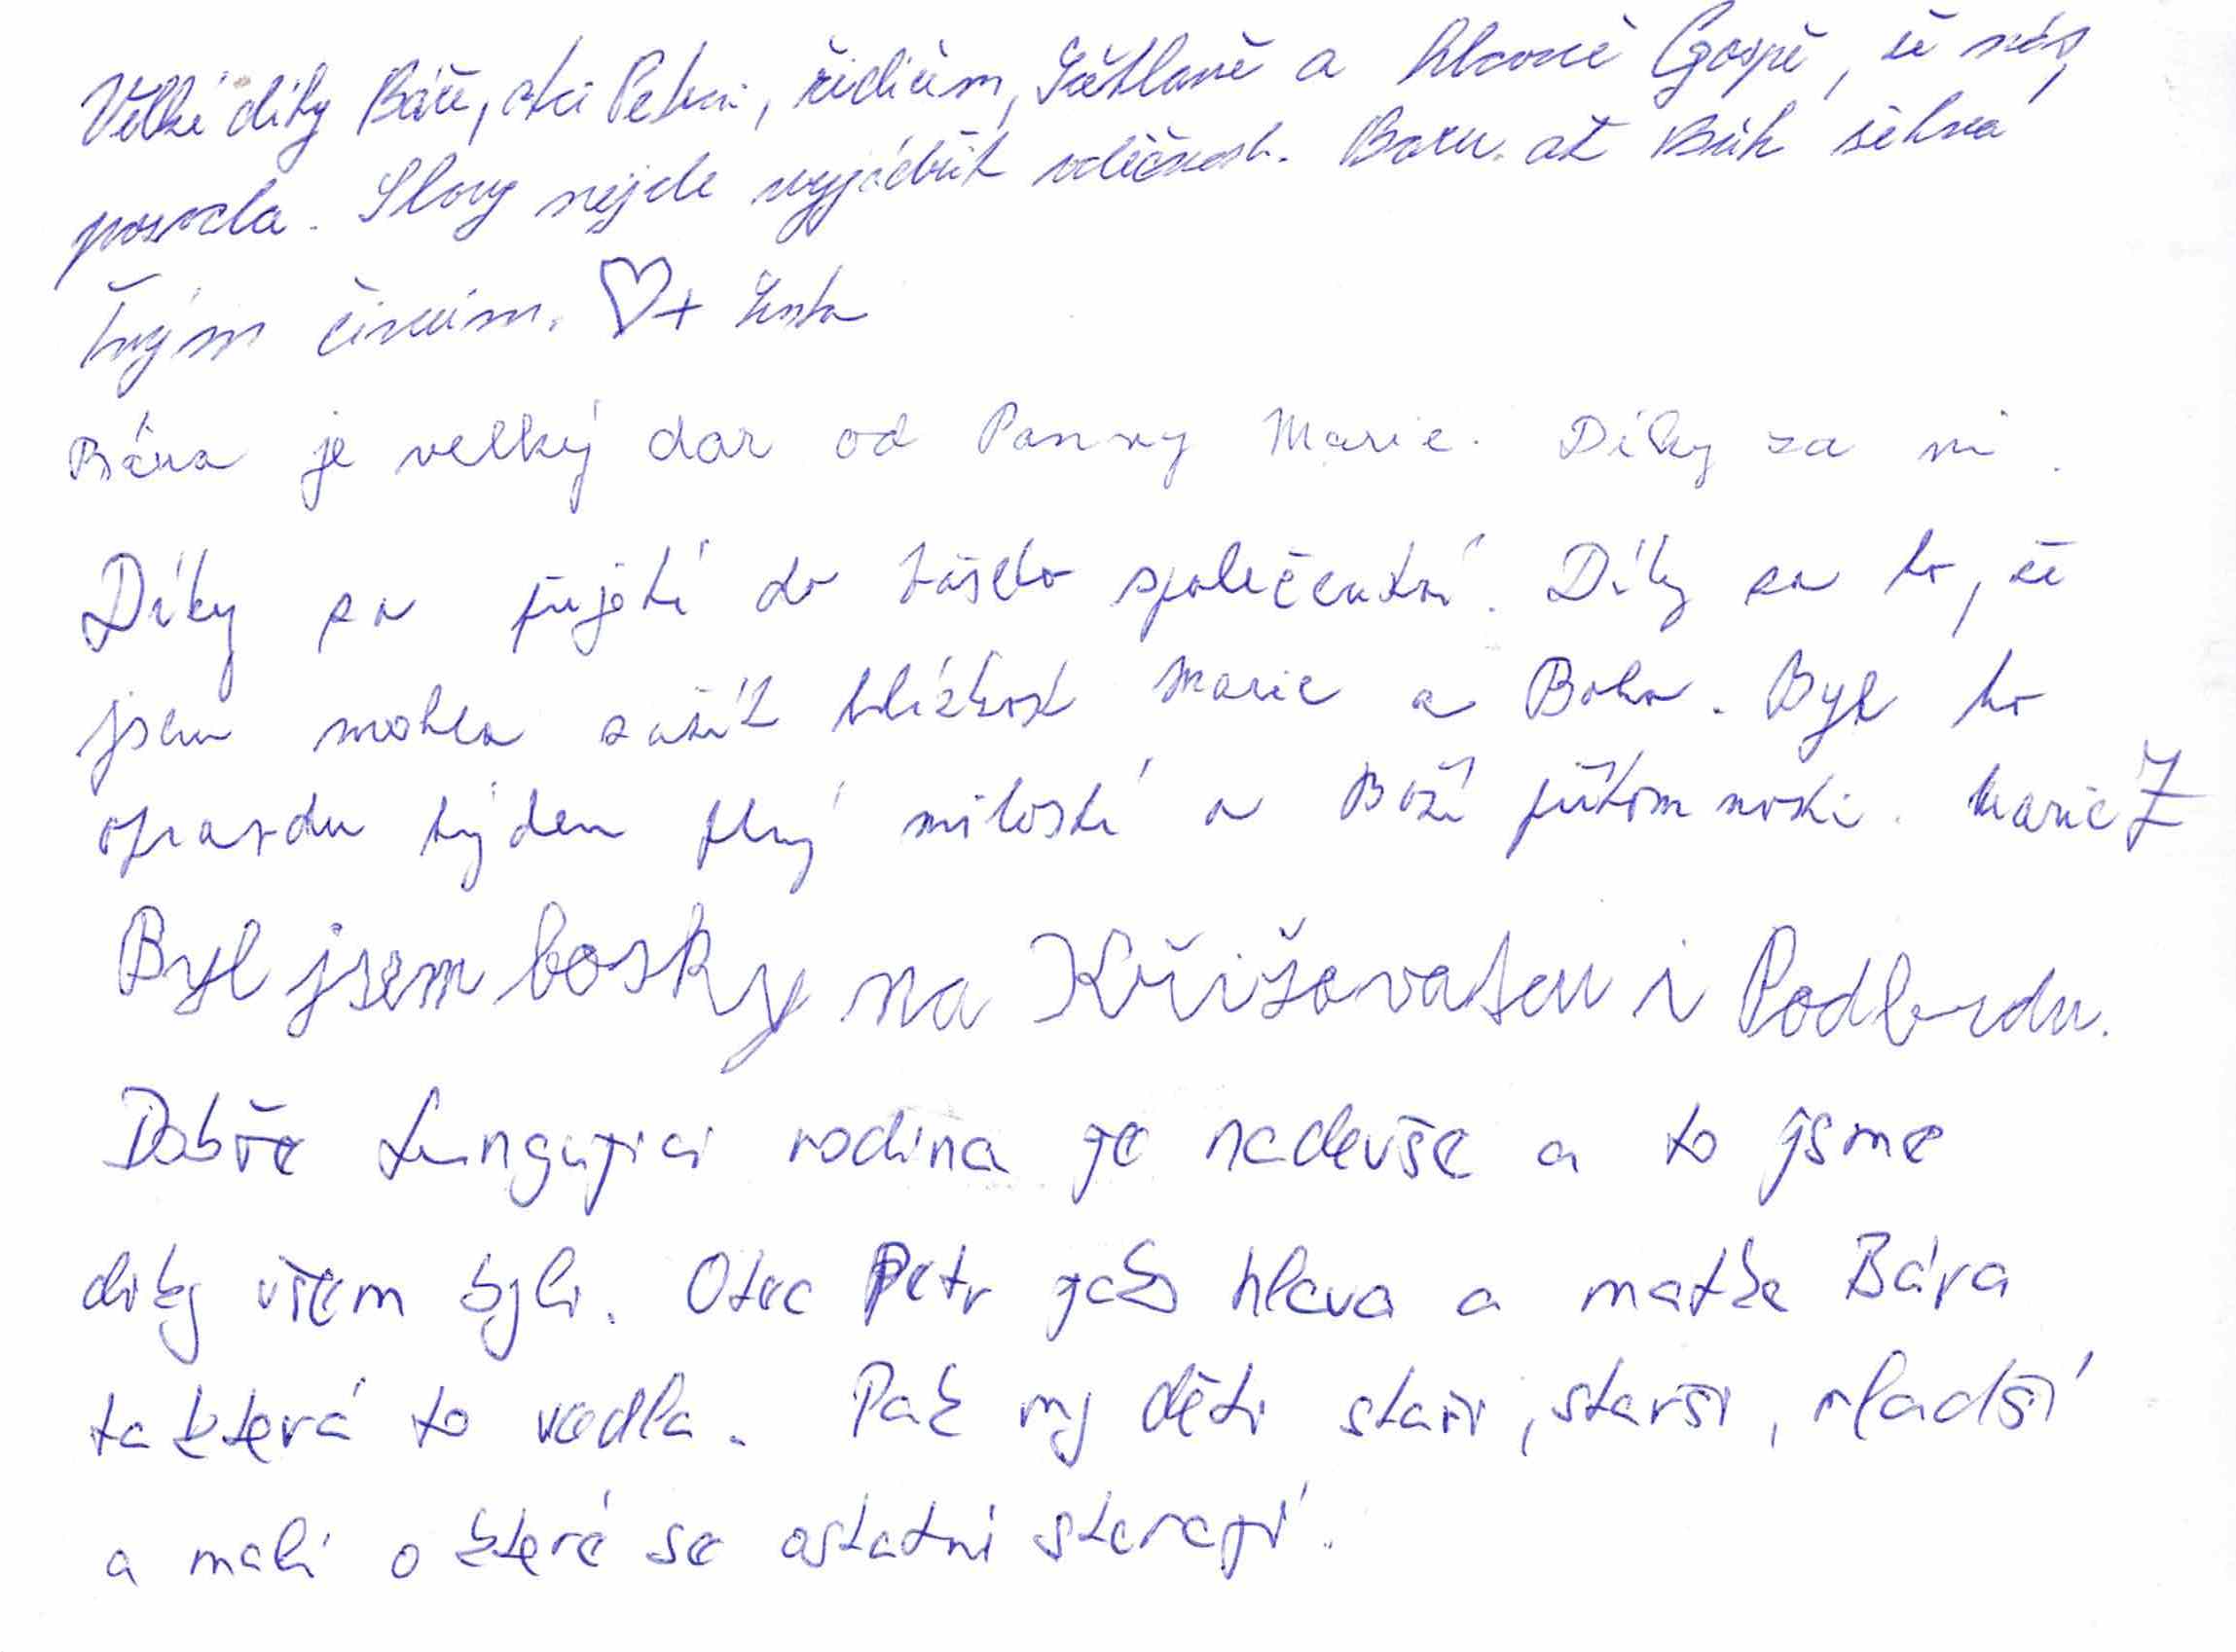 Velké díky Báře, otci Petrovi, řidičům, Světlaně a hlavně Gospě, že nás
pozvala. Slovy nejde vyjádřit vděčnost. Baru. ať Bůh žehná
Tvým činům. ♡+
Bára je velký dar od Panny Marie. Díky za ni.
Díky za přijetí do Vašeho společenství. Díky za to, že
jsem mohla zažít blízkost Marie a Boha. Byl to
opravdu týden plný milostí a Boží přítomnosti. Marie Z
Byl jsem bosky na Křiževatcu i Podbrdu.
Dobře fungující rodina je nadevše a to jsme
díky všem byli. Otec Petr jako hlava a matka Bára
ta která to vedla. Pak my děti staří, starší, mladší
a malí o které se ostatní starají.